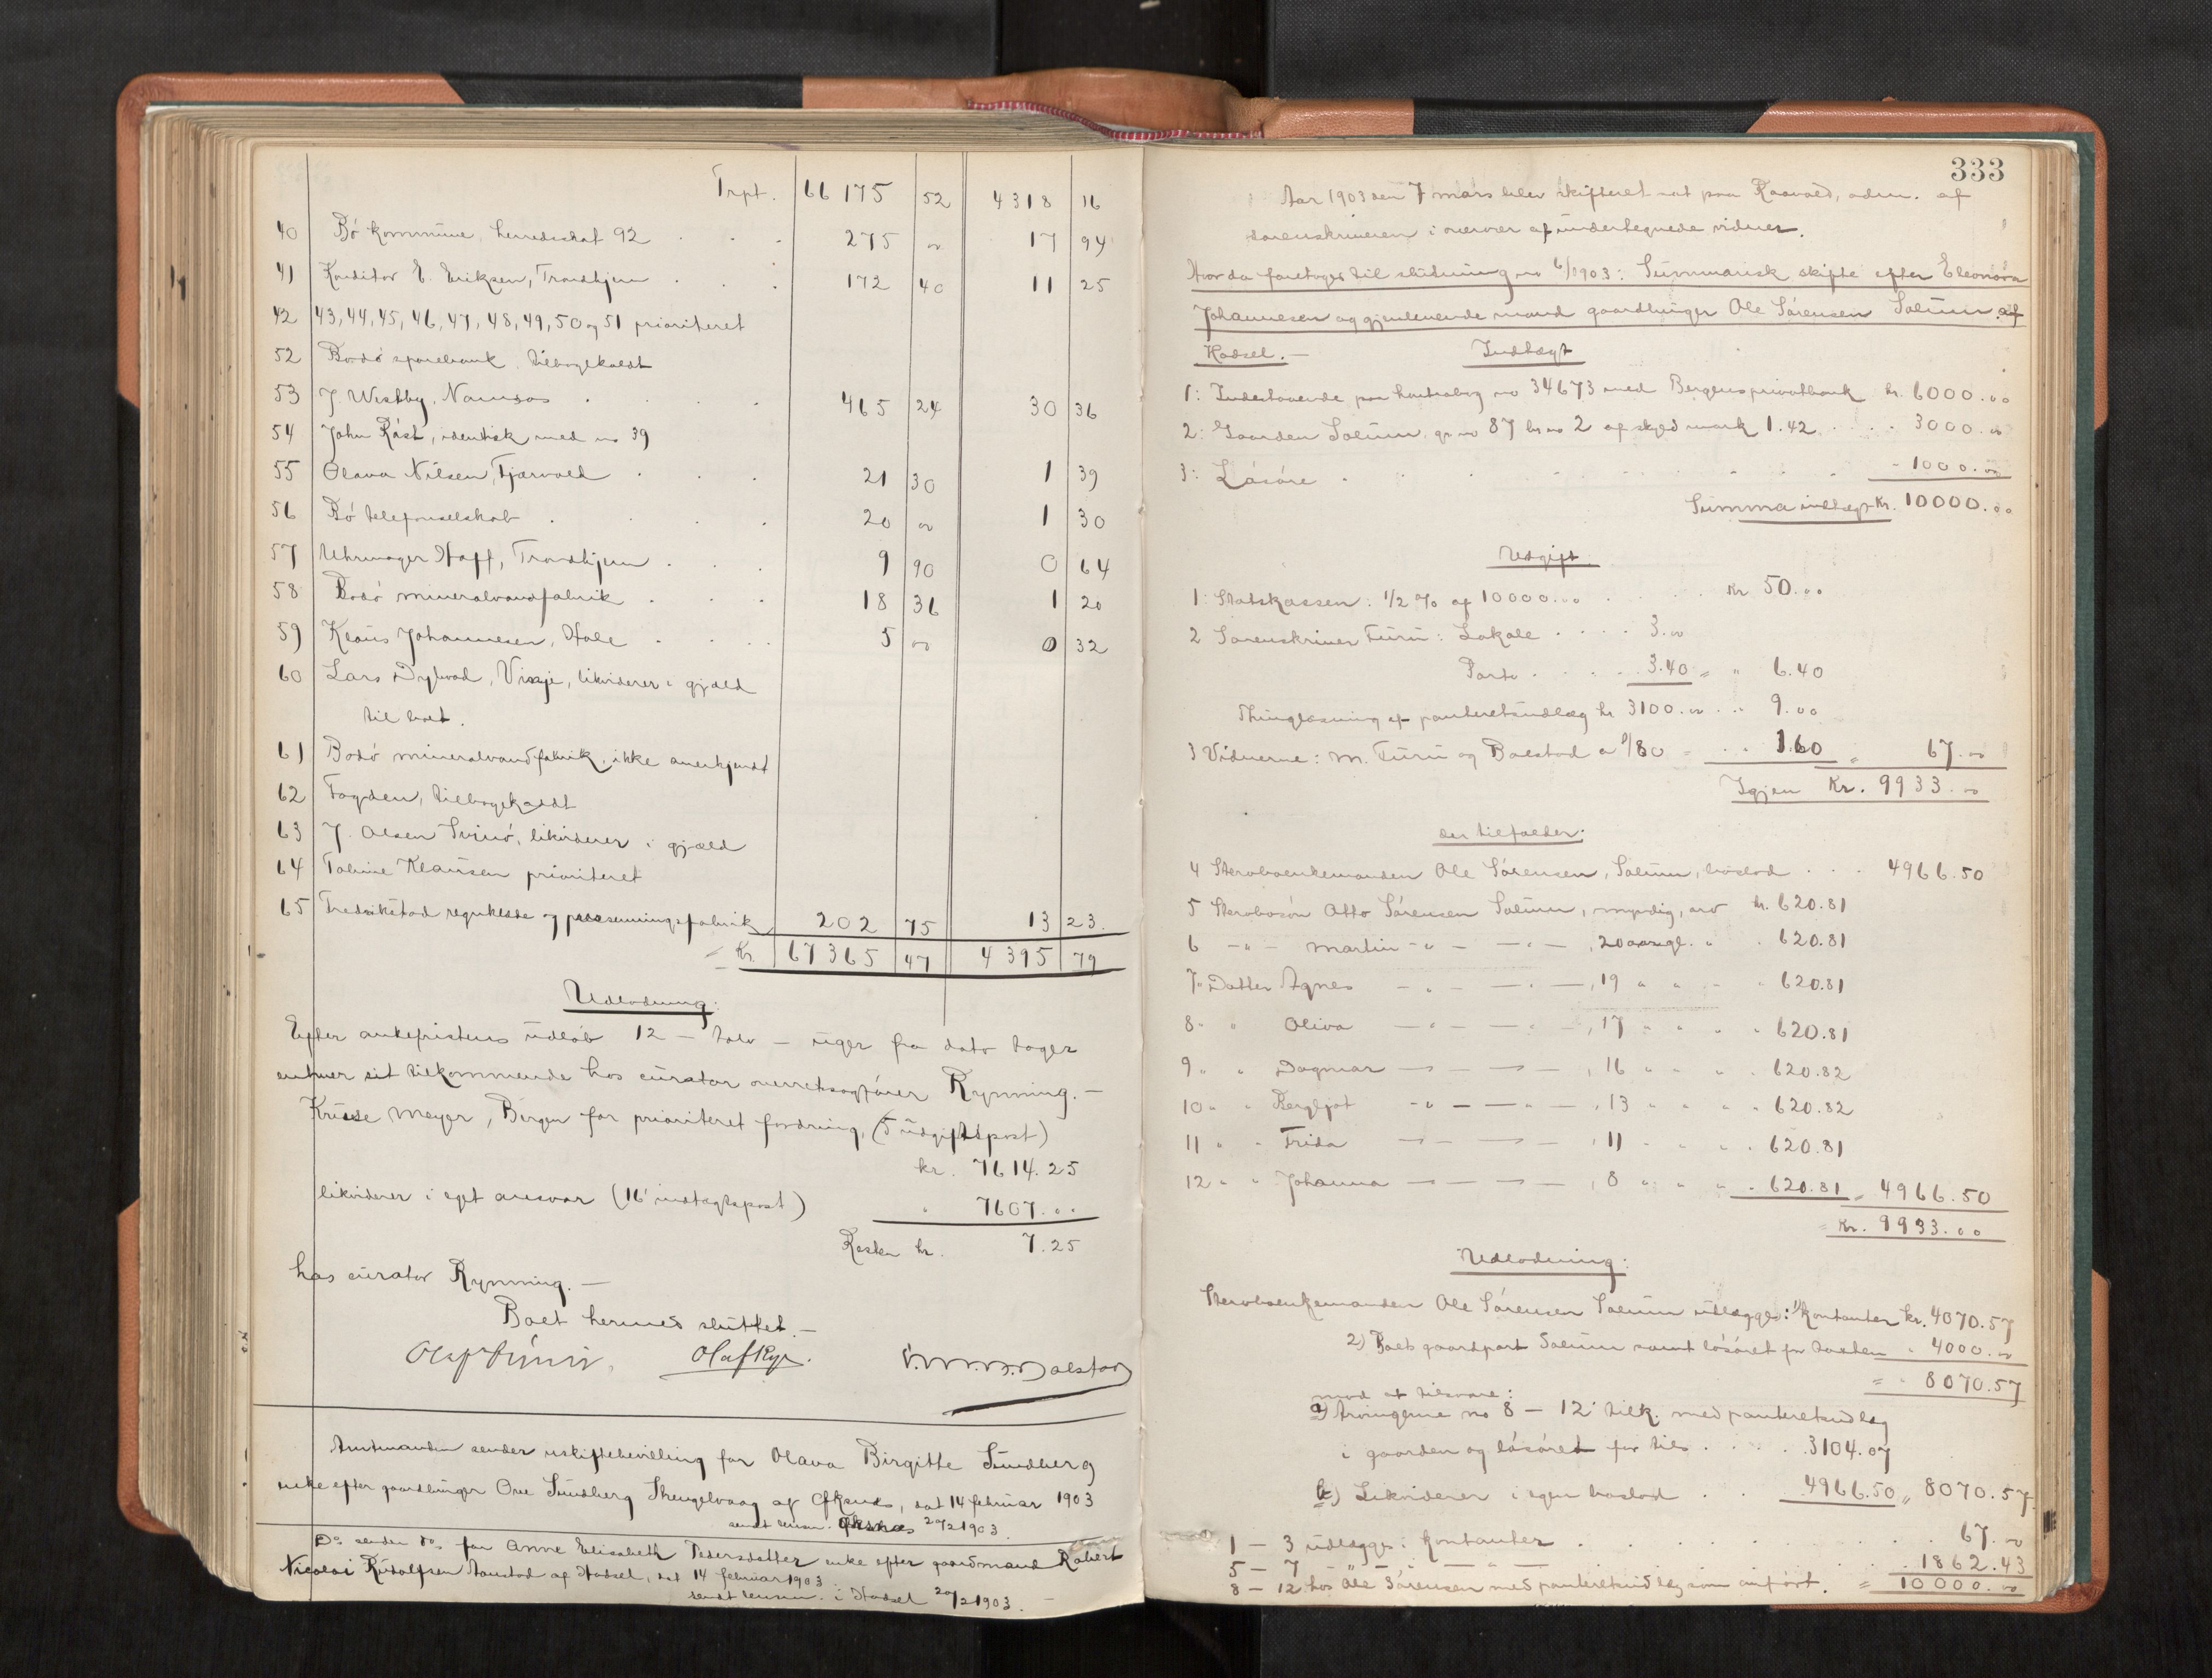 Trpt. 66 175 52 4318 16
40 Bø kommune, herredsskat 92 . . . 275 00 17 94
41 Konditor E. Eriksen, Trondhjem . . . 172 40 11 25
42 43, 44, 45, 46, 47, 48, 49, 50 og 51 prioriteret
52 Bodø sparebank, tilbagekaldt
53 J. Wistby, Namsos . . . . 465 24 30 36
54 John Røst, identisk med no 39
55 Olava Nilsen, Fjærvold . . . 21 30 1 39
56 Bø telefonselskab . . . . 20 00 1 30
57 Uhrmager Hoff, Trondhjem . . . 9 90 0 64
58 Bodø mineralvandfabrik . . . 18 36 1 20
59 Klaus Johannesen, Hole . . . . 5 00 0 32
60 Lars Dybvad, Vinje, likviderer i gjæld
til boet.
61 Bodø mineralvandfabrik, ikke anerkjendt
62 Fogden, tilbagekaldt
63 J. Olsen Svinø, likviderer i gjæld
64 Toline Klausen prioriteret
65 Fredrikstad regnklæde og presenningsfabrik 202 75 13 23.
= Kr. 67365 47 4395 79
Udlodning:
Efter ankefristens udløb 12 – tolv – uger fra dato tager
enhver sit tilkommende hos curator overretssagfører Rynning. –
Krüsse Meyer, Bergen for prioriteret fordring, (5 udgiftspost)
kr. 7614.25
likviderer i eget ansvar (16 indtægtspost) " 7607.00
Resten kr. 7.25
hos curator Rynning. –
Boet hermed sluttet. –
Olaf Furu. Olaf Rye. Balstad
Amtmanden sender uskiftebevilling for Olava Birgitte Sundberg
enke efter gaardbruger Ove Sundberg Thengelvaag af Øksnes, dat 14 februar 1903
sendt lensm. Øksnes 20/2 1903.
Do sender do for Anne Elisabeth Pedersdatter enke efter gaardmand Robert
Nicolai Rudolfsen Aanstad af Hadsel, dat 14 februar 1903
sendt lensm. i Hadsel 20/2 1903. –
333
Aar 1903 den 7 mars blev skifteret sat paa adm. af
sorenskriveren i overvær af undertegnede vidner.
Hvorda foretoges til slutning no 6/1903: Summarisk skifte efter Eleonora
Johannesen og gjenlevende mand gaardbruger Ole Sørensen Solum af
Hadsel. – Indtægt
1: Indestaaende paa kontrabog no 34673 med Bergens privatbank kr. 6000.00
2: Gaarden Solum gr no 87 br no 2 af skyld mark 1.42 . . . . 3000.00
3: Løsøre . . . . . . . . . - 1000.00
Summa indtægt kr. 10000.00
Udgift.
1: Statskassen: 1/2 % af 10000.00 . . . . Kr 50.00
2 Sorenskriver Furu: Lokale . . . . 3.00
Porto . . . . 3.40 = " 6.40
Thinglæsning af panteretsudlæg kr 3100.00 . . " 9.00
3 Vidnerne: M. Furu og Balstad a /80 = . . 1.60 = 67.00
Igjen Kr. 9933.00
der tilfalder:
4 Stervboenkemanden Ole Sørensen, Solum, boslod . . . 4966.50
5 Stervbosøn Otto Sørensen Solum, myndig, arv kr. 620.81
6 – " – Martin – " – – " – , 20 aar gl. " . 620.81
7 " Datter Agnes – " – – " – , 19 " " – " 620.81
8 " " Oliva – " – – " – , 17 " " " " 620.81
9 " " Dagmar – " – – " – , 16 " " " . 620.82
10 " " Bergljot – " – – " – , 13 " " " " 620.82
11 " " Frida – " – – " – , 11 " " " . 620.81
12 " " Johanna – " – – " – , 8 " " " . 620.81 = 4966.50
= Kr. 9933.00
Udlodning:
Stervboenkemanden Ole Sørensen Solum udlægges: 1) Kontanter kr. 4070.57
2) Boets gaardpart Solum samt løsøret for taxten " 4000.00
= " 8070.57
mod at tilsvare:
a) Arvingerne no 8 – 12 tilk. med panteretsudlæg
i gaarden og løsøret for tils . . . . 3104.07
b) Likviderer i egen boslod . . 4966.50 " 8070.57
1 – 3 udlægges i Kontanter . . . . . . . 67.00
5 – 7 – " – i – " – . . . . . . 1862.43
8 – 12 hos Ole Sørensen med panteretsudlæg som anført. = 10000.00